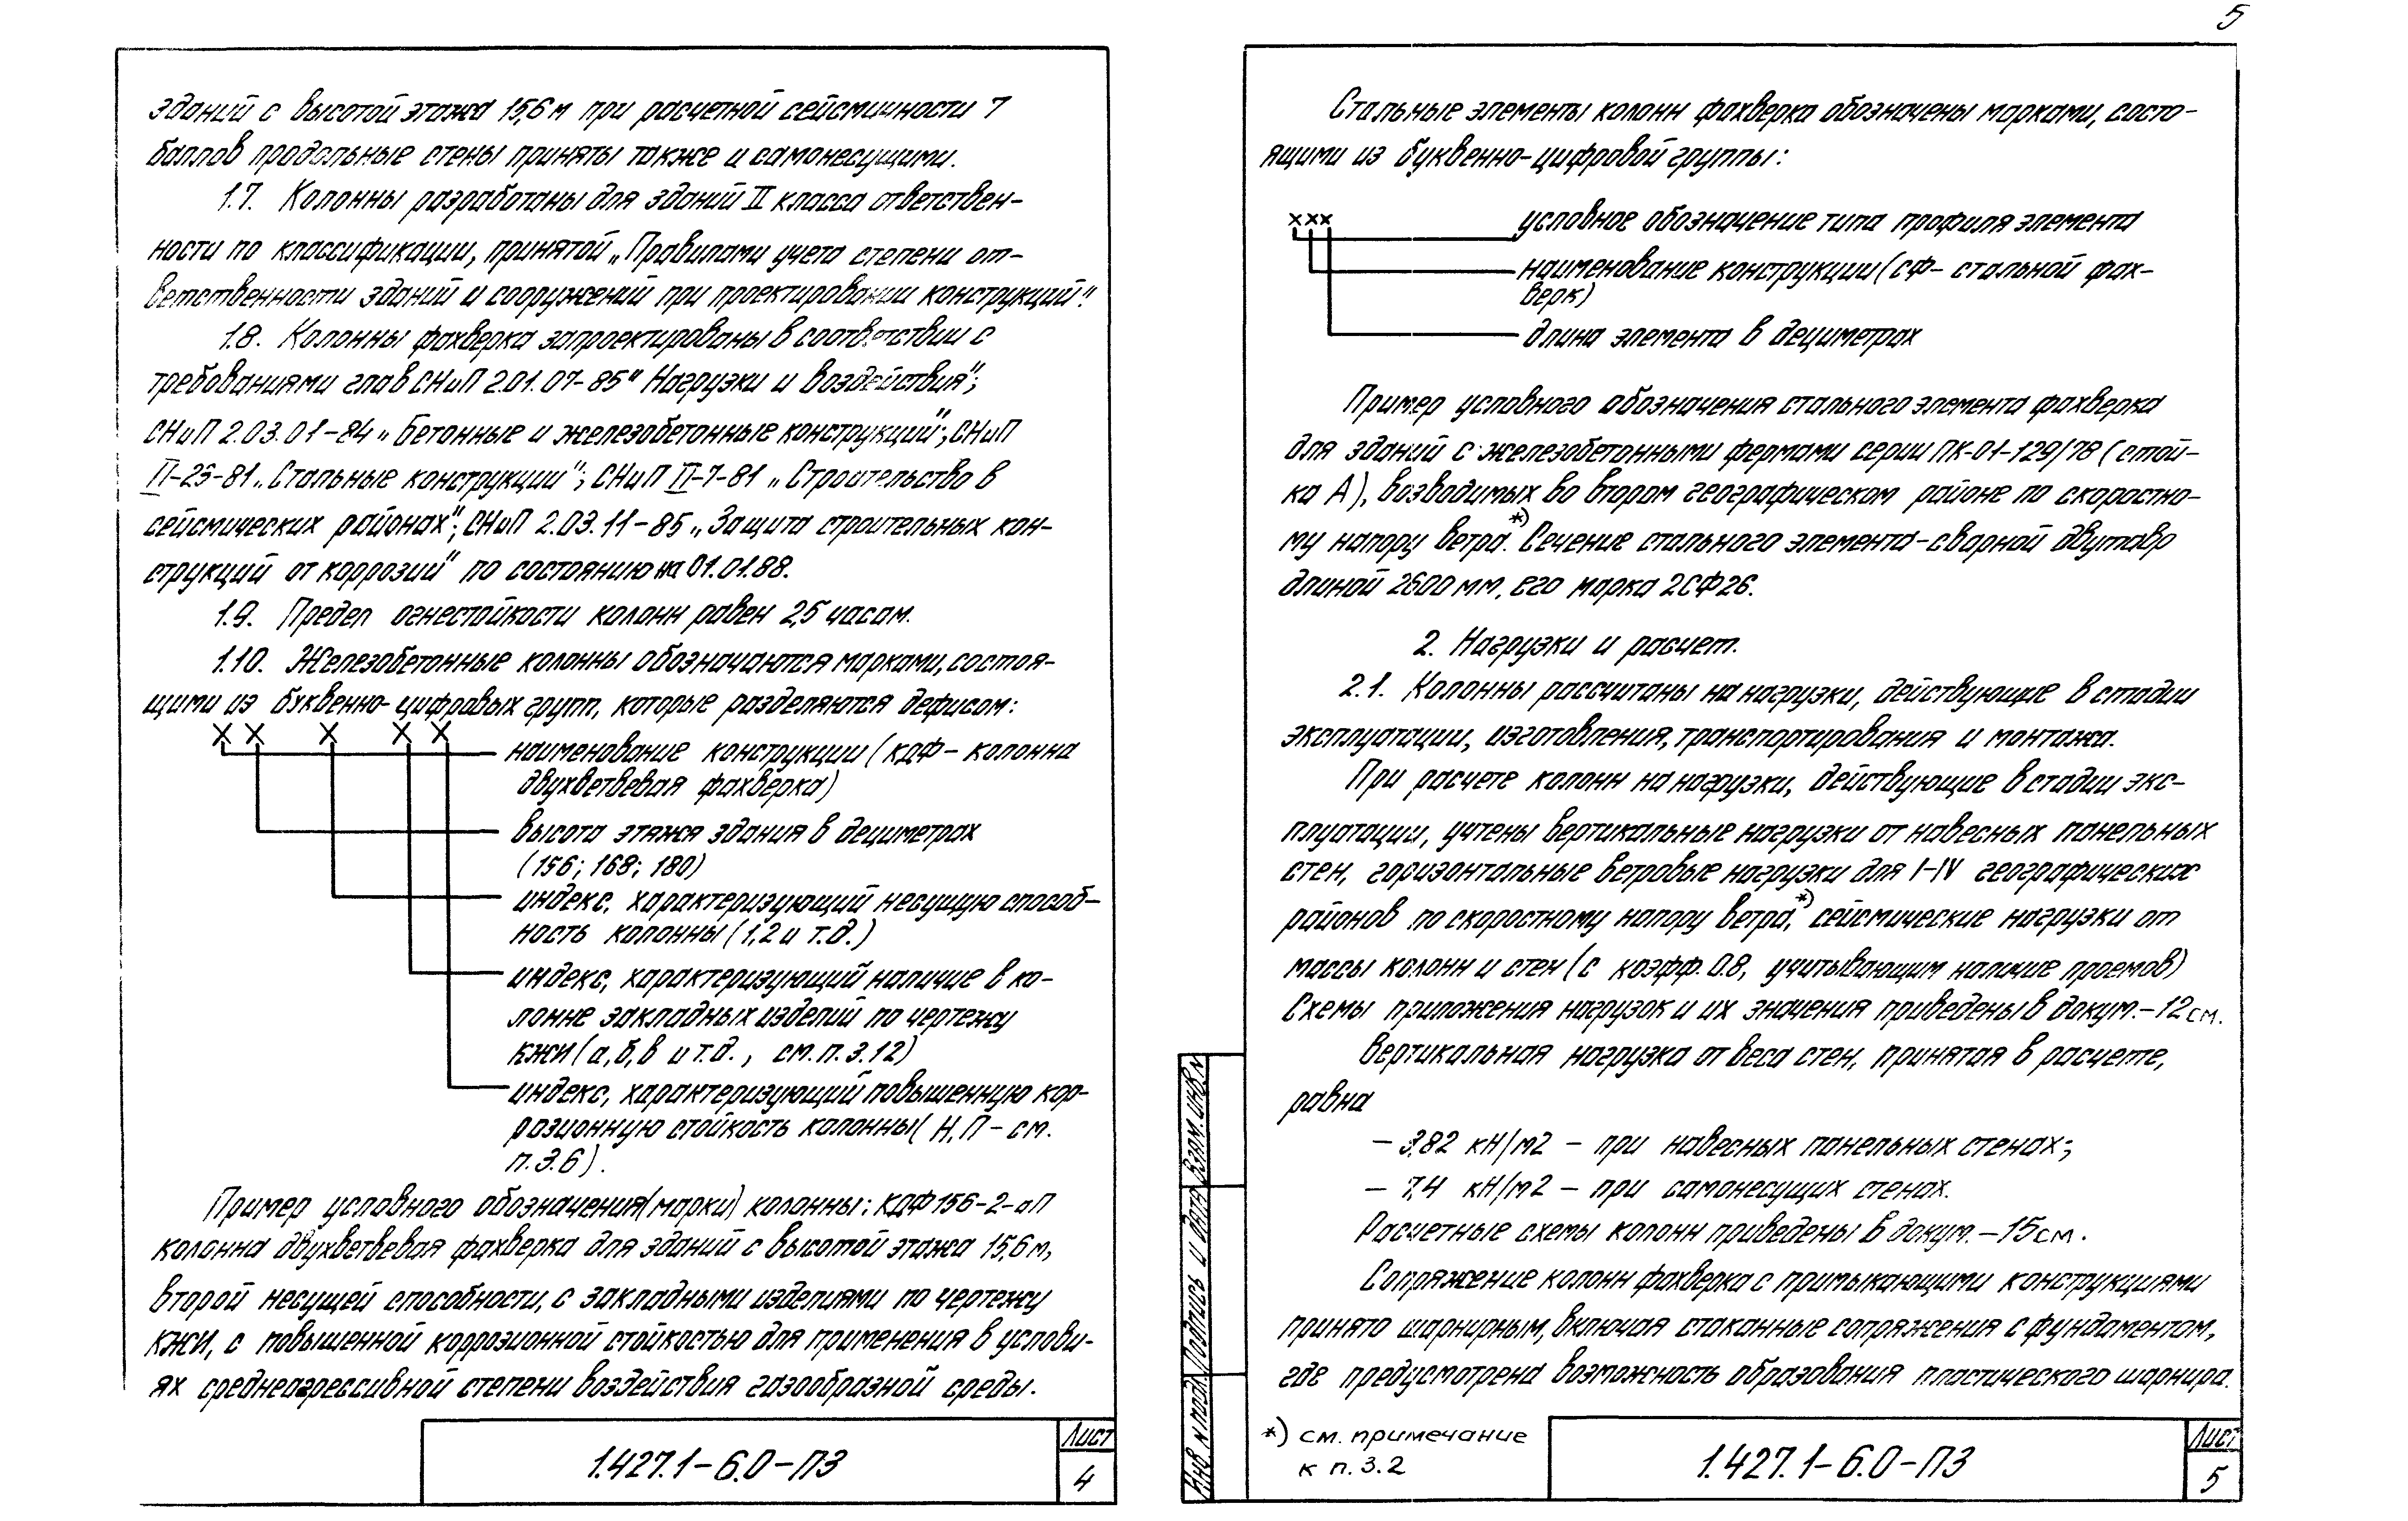 зданий с высотой этажа 15,6 м при расчетной сейсмичности 7
баллов продольные стены приняты также и самонесущими.
1.7. Колонны разработаны для зданий II класса ответствен-
ности по классификации, принятой „Правилами учета степени от-
ветственности зданий и сооружений при проектировании конструкций".
1.8. Колонны фахверка запроектированы в соответствии с
требованиями глав СНиП 2.01.07-85 " Нагрузки и воздействия";
СНиП 2.03.01-84 „ Бетонные и железобетонные конструкций"; СНиП
II-23-81 „Стальные конструкции"; СНиП II-7-81 „ Строительство в
сейсмических районах"; СНиП 2.03.11-85 „Защита строительных кон-
струкций от коррозий" по состоянию на 01.01.88.
1.9. Предел огнестойкости колонн равен 2,5 часам.
1.10. Железобетонные колонны обозначаются марками, состоя-
щими из буквенно-цифровых групп, которые разделяются дефисом:
X X X X X
наименование конструкции (КДФ - колонна
двухветвевая фахверка)
высота этажа здания в дециметрах
(156; 168; 180)
индекс, характеризующий несущую способ-
ность колонны (1,2 и т.д.)
индекс, характеризующий наличие в ко-
лонне закладных изделий по чертежу
КЖИ (а,б,в и т.д. , см. п. 3.12)
индекс, характеризующий повышенную кор-
розионную стойкость колонны ( Н, П - см.
п. 3.6).
Пример условного обозначения (марки) колонны: КДФ 156-2-аП
колонна двухветвевая фахверка для зданий с высотой этажа 15,6 м,
второй несущей способности, с закладными изделиями по чертежу
КЖИ, с повышенной коррозионной стойкостью для применения в услови-
ях среднеагрессивной степени воздействия газообразной среды.
1.427.1-6.0-ПЗ
Лист
4
5
Стальные элементы колонн фахверка обозначены марками, состо-
ящими из буквенно-цифровой группы:
xxx
условное обозначение типа профиля элемента
наименование конструкции (СФ - стальной фах-
верк)
длина элемента в дециметрах
Пример условного обозначения стального элемента фахверка
для зданий с железобетонными фермами серии ПК-01-129/78 (стой-
ка А), возводимых во втором географическом районе по скоростно-
му напору ветра.*) Сечение стального элемента-сварной двутавр
длиной 2600 мм, его марка 2СФ26.
2. Нагрузки и расчет.
2.1. Колонны рассчитаны на нагрузки, действующие в стадии
эксплуатации, изготовления, транспортирования и монтажа.
При расчете колонн на нагрузки, действующие в стадии экс-
плуатации, учтены вертикальные нагрузки от навесных панельных
стен, горизонтальные ветровые нагрузки для I-IV географических
районов по скоростному напору ветра,*) сейсмические нагрузки от
массы колонн и стен (с коэфф. 0.8, учитывающим наличие проемов)
Схемы приложения нагрузок и их значения приведены в докум.-12см.
Вертикальная нагрузка от веса стен, принятая в расчете,
равна
- 3,82 кН/м2 - при навесных панельных стенах;
- 7,4 кН/м2 - при самонесущих стенах.
Расчетные схемы колонн приведены в докум.-15см.
Сопряжение колонн фахверка с примыкающими конструкциями
принято шарнирным, включая стаканные сопряжения с фундаментом,
где предусмотрена возможность образования пластического шарнира.
*) см. примечание
к п. 3.2
Инв. N подл. Подпись и дата Взам. инв. N
1.427.1-6.0-ПЗ
Лист
5